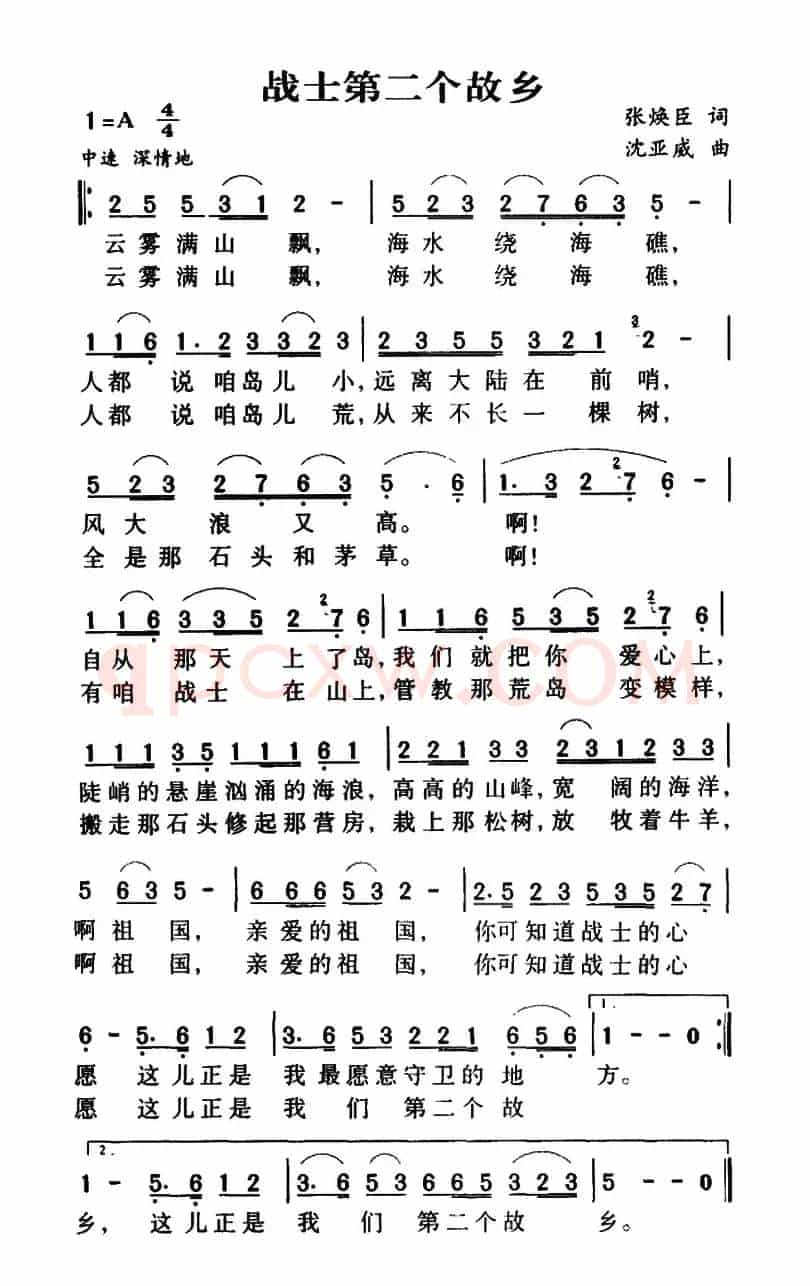 战士第二个故乡
1=A 4/4
张焕臣 词
中速 深情地
沈亚威 曲
2 5 5 3 1 2 - | 5 2 3 2 7 6 3 5 - |
云雾满山飘, 海水绕海礁,
云雾满山飘, 海水绕海礁,
1 1 6 1. 2 3 3 2 3 | 2 3 5 5 3 2 1 3 2 - |
人都说咱岛儿小,远离大陆在前哨,
人都说咱岛儿荒,从来不长一棵树,
5 2 3 2 7 6 3 5 . 6 | 1. 3 2 2 7 6 - |
风大浪又高。啊!
全是那石头和茅草。啊!
1 1 6 3 3 5 2 2 7 6 | 1 1 6 5 3 5 2 2 7 6 |
自从那天上了岛,我们就把你爱心上,
有咱战士在山上,管教那荒岛变模样,
1 1 1 3 5 1 1 1 6 1 | 2 2 1 3 3 2 3 1 2 3 3 |
陡峭的悬崖汹涌的海浪,高高的山峰,宽阔的海洋,
搬走那石头修起那营房,栽上那松树,放牧着牛羊,
5 6 3 5 - | 6 6 6 5 3 2 - | 2. 5 2 3 5 3 5 2 7 |
啊祖国, 亲爱的祖国, 你可知道战士的心
啊祖国, 亲爱的祖国, 你可知道战士的心
1.
6 - 5. 6 1 2 | 3. 6 5 3 2 2 1 6 5 6 | 1 - - 0 :|
愿 这儿正是我最愿意守卫的地方。
愿 这儿正是我们第二个故
2.
1 - 5. 6 1 2 | 3. 6 5 3 6 6 5 3 2 3 | 5 - - 0 |
乡, 这儿正是我们第二个故乡。
qpcxw.COM